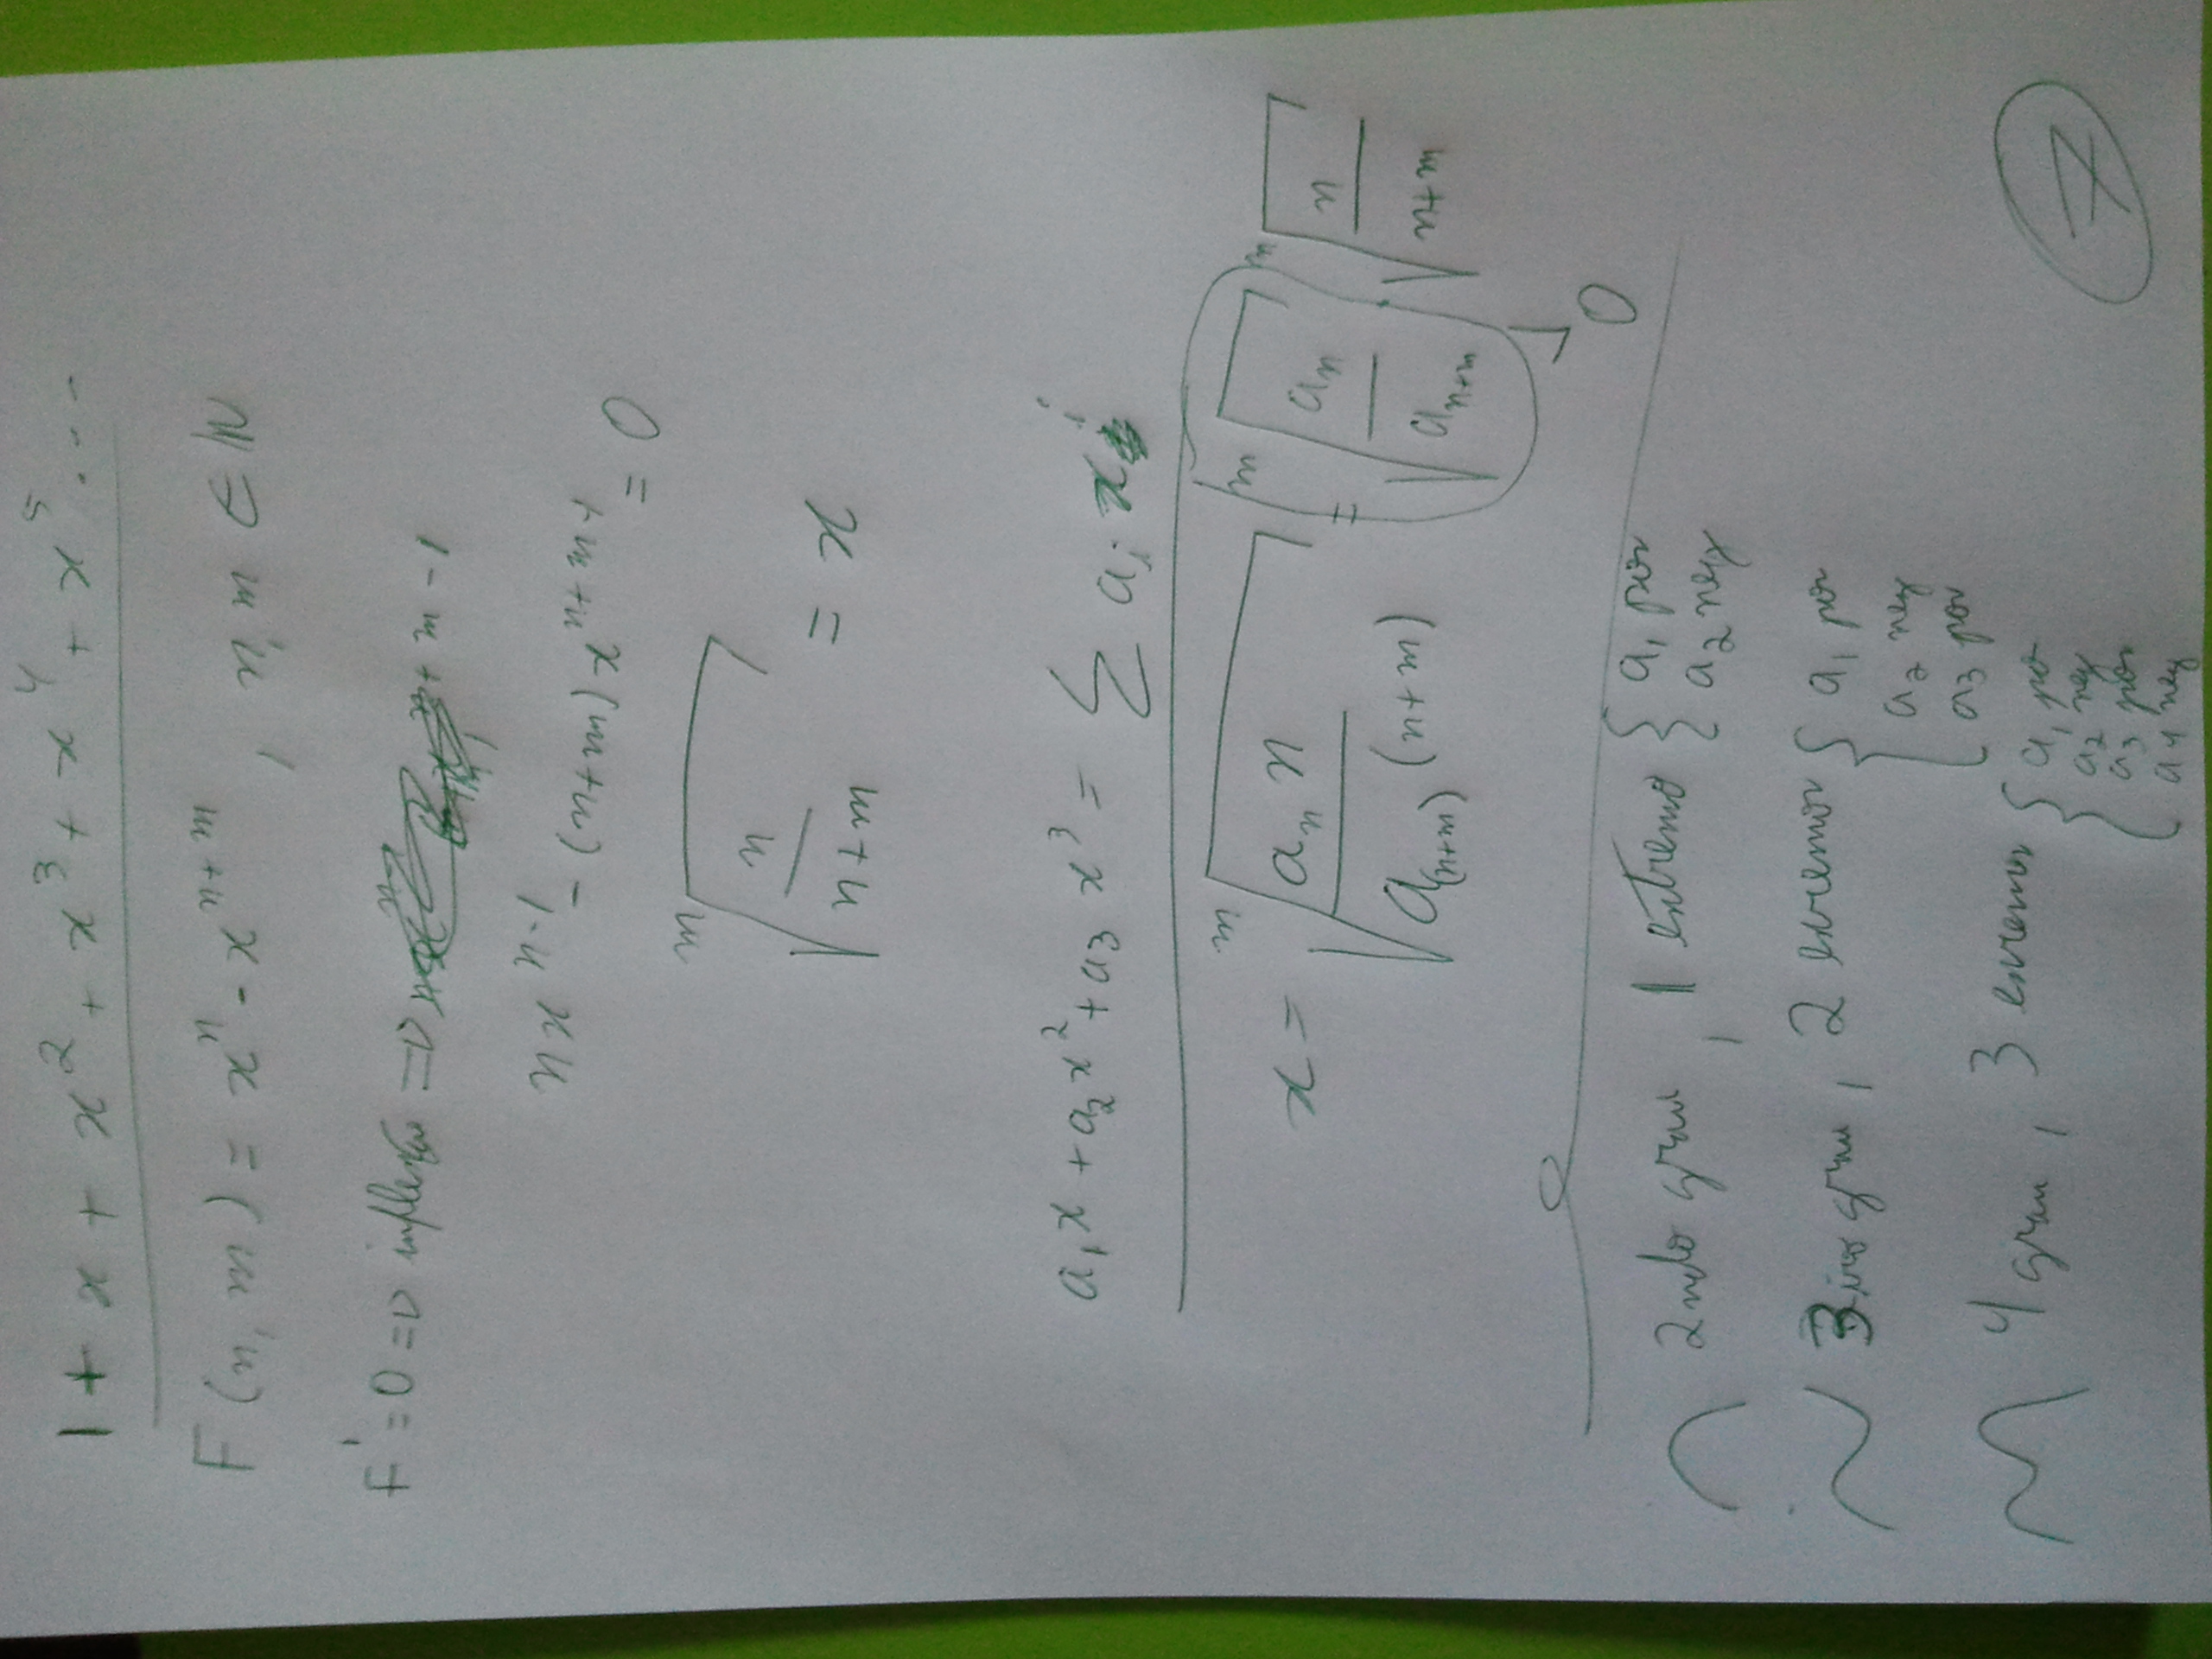 1 + x + x² + x³ + x⁴ + x⁵ . . . -
F (n, m) = xⁿ - xⁿ⁺ᵐ , n, m ∈ ℕ
F' = 0 => => n + m - 1
n xⁿ⁻¹ - (n+m) xⁿ⁺ᵐ⁻¹ = 0
ᵐ√(n / (n+m)) = x
a₁x + a₂x² + a₃x³ = ∑ aᵢ xⁱ
x = ᵐ√(aₙ n / (a₍ₙ₊ₘ₎ (n+m))) = ᵐ√(aₙ / aₙ₊ₘ) · ᵐ√(n / (n+m))
0
2ndo grau , 1 extremo { a₁ pos
a₂ neg
3iro grau , 2 extremos { a₁ pos
a₂ neg
a₃ pos
4 grau , 3 extremos { a₁ pos
a₂ neg
a₃ pos
a₄ neg
7